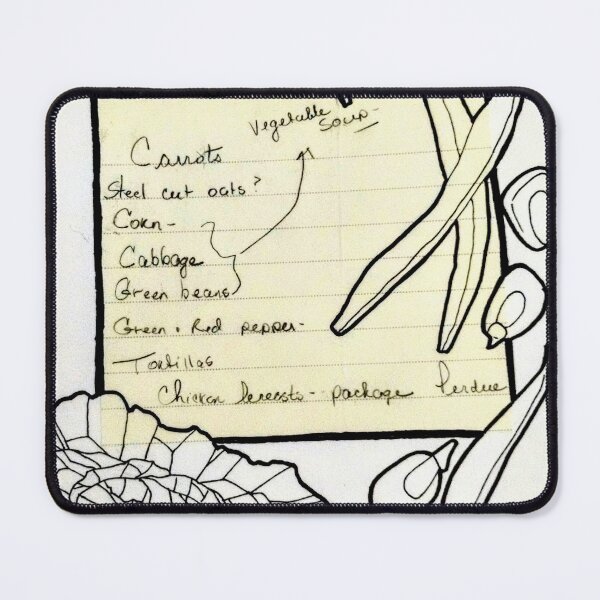 Vegetable
Soup-
Carrots
Steel cut oats?
Corn-
Cabbage
Green beans
Green + Red pepper-
Tortillas
Chicken breasts-- package Perdue